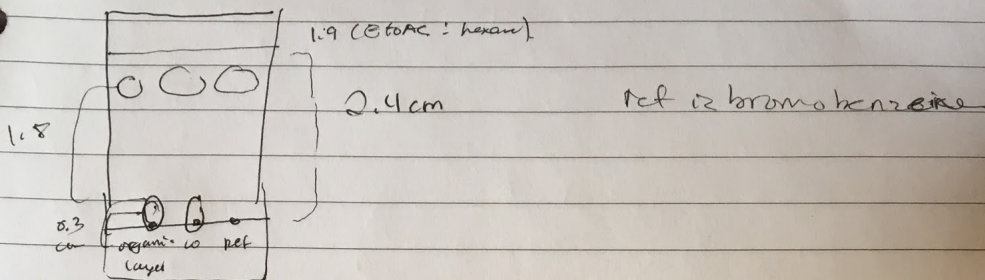 1:9 (EtoAc : hexane)
2.4cm
ref is bromobenzene
1.8
0.3
cm
organic co ref
layer